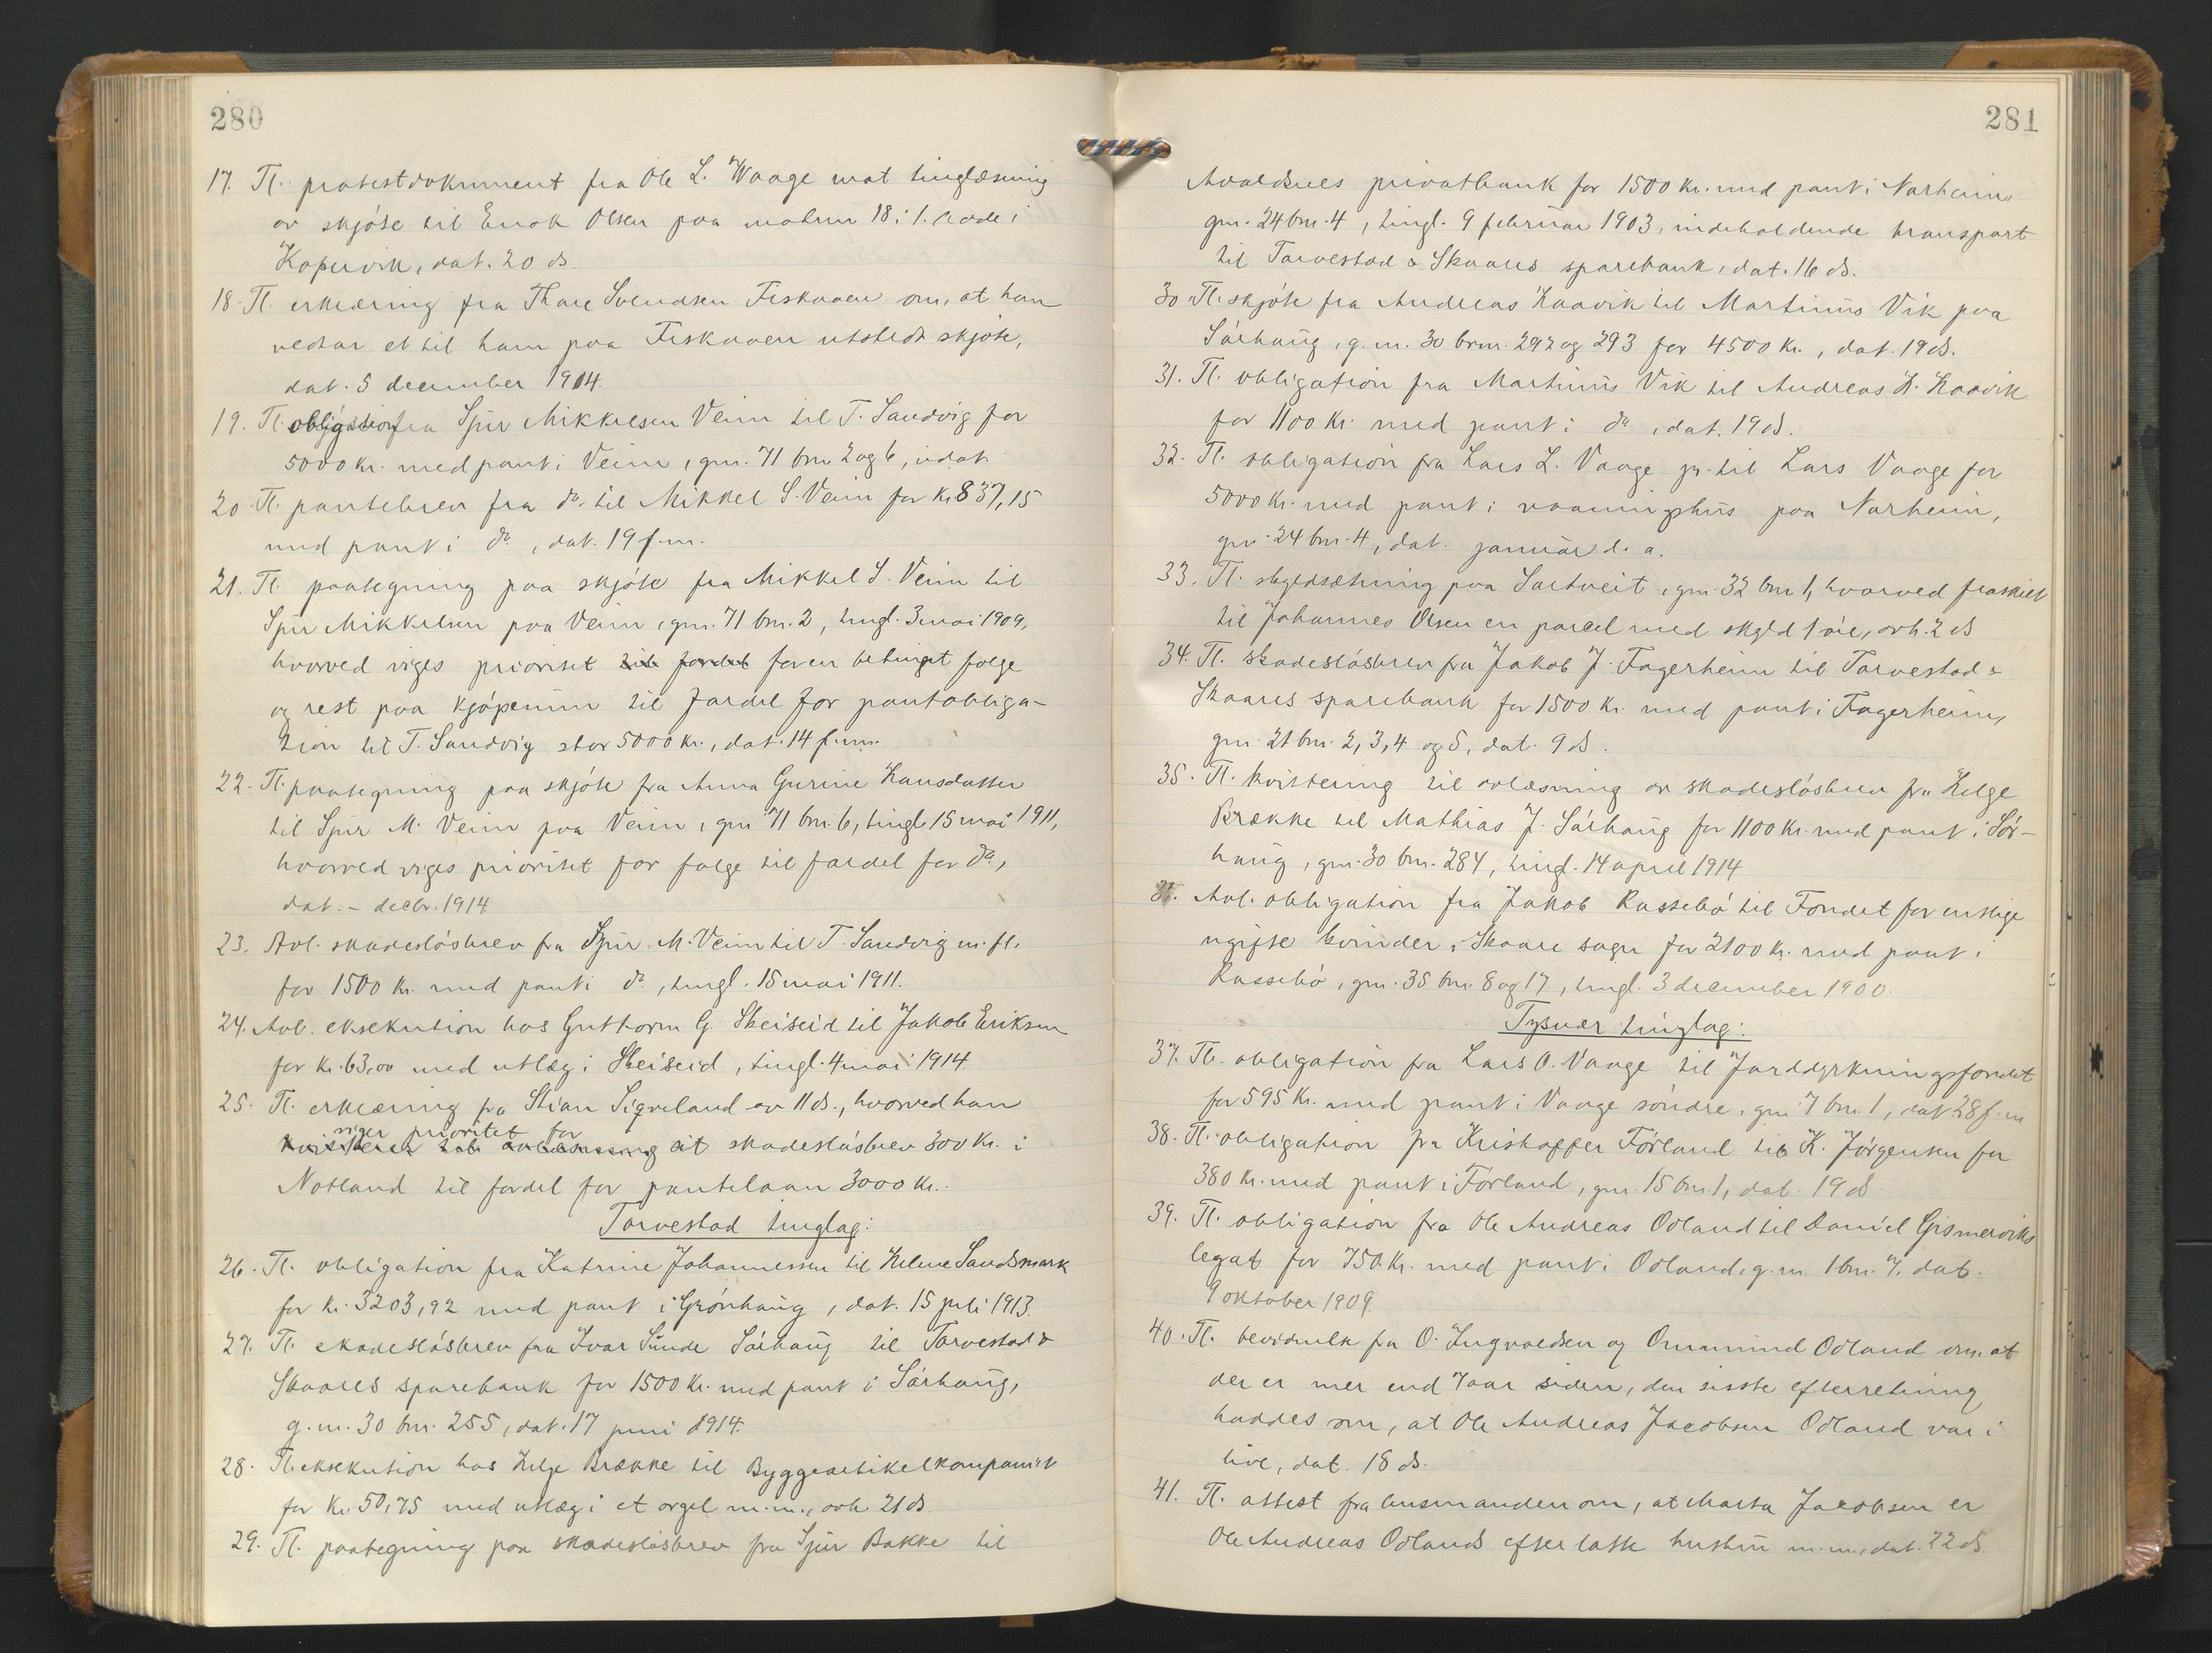 280
17. Tl. protestdokument fra Ole L. Waage mot tinglæsning
av skjöte til Enok Olsen paa matrnr 18 i 1. rode i
Kopervik, dat. 20 ds.
18. Tl. erklæring fra Thore Svendsen Fiskaaen om, at han
vedtar et til ham paa Fiskaaen utstedt skjöte,
dat. 5 december 1914.
19. Tl. obligation fra Sjur Mikkelsen Veim til T. Sandvig for
5000 kr. med pant i Veim, gnr. 71 bnr 2 og 6, udat.
20. Tl. pantebrev fra do. til Mikkel S. Veim for Kr. 837,15
med pant i do., dat. 19 f.m.
21. Tl. paategning paa skjöte fra Mikkel S. Veim til
Sjur Mikkelsen paa Veim, gnr. 71 bnr. 2, tingl. 3 mai 1909,
hvorved viges prioritet til fordel for en betinget følge
og rest paa kjöpesum til fordel for pantobliga-
tion til T. Sandvig stor 5000 kr., dat. 14 f.m.
22. Tl. paategning paa skjöte fra Anna Gurine Hansdatter
til Sjur M. Veim paa Veim, gnr 71 bnr. 6, tingl. 15 mai 1911,
hvorved viges prioritet for følge til fordel for do.,
dat. - decbr. 1914
23. Avl. skadeslösbrev fra Sjur M. Veim til T. Sandvig m. fl.
for 1500 kr. med pant i do., tingl. 15 mai 1911.
24. Avl. eksekution hos Guttorm G. Skeiseid til Jakob Eriksen
for kr. 63,00 med utlæg i Skeiseid, tingl. 4 mai 1914.
25. Tl. erklæring fra Stian Sigveland av 11 ds., hvorved han
viger prioritet for
kvitterer til avlæsning sit skadeslösbrev 300 kr. i
Notland til fordel for pantelaan 3000 kr.
Torvestad tinglag:
26. Tl. obligation fra Katrine Johannessen til Helene Sandsmark
for kr. 3203,92 med pant i Grönhaug, dat. 15 juli 1913.
27. Tl. skadeslösbrev fra Ivar Sunde Sörhaug til Torvestad &
Skaares sparebank for 1500 kr. med pant i Sörhaug,
g.nr. 30 bnr. 255, dat. 17 juni 1914.
28. Tl. eksekution hos Helge Brække til Byggeartikelkompaniet
for kr. 50,75 med utlæg i et orgel m.m., avh. 21 ds.
29. Tl. paategning paa skadeslösbrev fra Sjur Bakke til
281
Avaldsnes privatbank for 1500 kr. med pant i Norheim,
gnr. 24 bnr. 4, tingl. 9 februar 1903, indeholdende transport
til Torvestad & Skaares sparebank, dat. 16 ds.
30. Tl. skjöte fra Andreas Haavik til Martinus Vik paa
Sörhaug, g.nr. 30 brnr. 292 og 293 for 4500 kr., dat. 19 ds.
31. Tl. obligation fra Martinus Vik til Andreas H. Haavik
for 1100 kr. med pant i do., dat. 19 ds.
32. Tl. obligation fra Lars L. Vaage jr. til Lars Vaage for
5000 kr. med pant i vaaningshus paa Norheim,
gnr. 24 bnr. 4, dat. januar d. a.
33. Tl. skyldsætning paa Sortveit, gnr. 32 bnr 1, hvorved fraskilt
til Johannes Olsen en parcel med skyld 1 øre, avh. 2 ds
34. Tl. skadeslösbrev fra Jakob J. Fagerheim til Torvestad &
Skaares sparebank for 1500 kr. med pant i Fagerheim,
gnr. 21 bnr. 2, 3, 4 og 5, dat. 9 ds.
35. Tl. kvittering til avlæsning av skadeslösbrev fra Helge
Brække til Mathias J. Sörhaug for 1100 kr. med pant i Sör-
haug, gnr. 30 bnr. 284, tingl. 14 april 1914
36. Avl. obligation fra Jakob Rassebö til Fondet for enslige
ugifte kvinder i Skaare sogn for 2100 kr. med pant i
Rassebö, gnr. 35 bnr. 8 og 17, tingl. 3 december 1900.
Tysvær tinglag:
37. Tl. obligation fra Lars O. Vaage til Jorddyrkningsfondet
for 595 kr. med pant i Vaage söndre, gnr. 7 bnr. 1, dat 28 f.m
38. Tl. obligation fra Kristoffer Förland til K. Jörgensen for
380 kr. med pant i Förland, gnr. 15 bnr. 1, dat. 19 ds
39. Tl. obligation fra Ole Andreas Odland til Daniel Gismerviks
legat for 750 kr. med pant i Odland, g.nr. 1 bnr. 7, dat.
9 oktober 1909.
40. Tl. bevidnelse fra O. Ingvaldsen og Ommund Odland om, at
der er mer end 7 aar siden, den sisste efterretning
haddes om, at Ole Andreas Jacobsen Odland var i
live, dat. 18 ds.
41. Tl. attest fra lensmanden om, at Marta Jacobsen er
Ole Andreas Odlands efterlatte hustru m.m., dat. 22 ds.